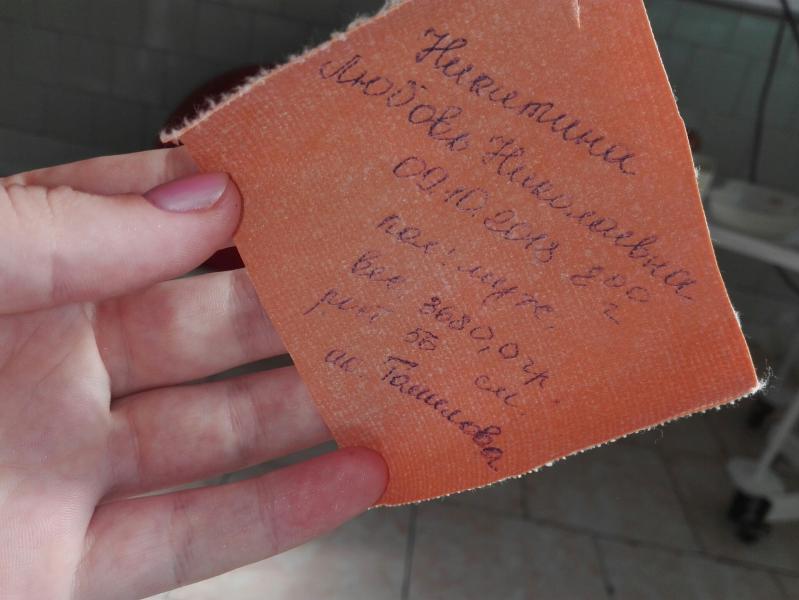 Никитина
Любовь Николаевна
09.10.2018 8 00 г
пол: муж.
вес 3680,0 гр.
рост 55 см.
ак. Томилова